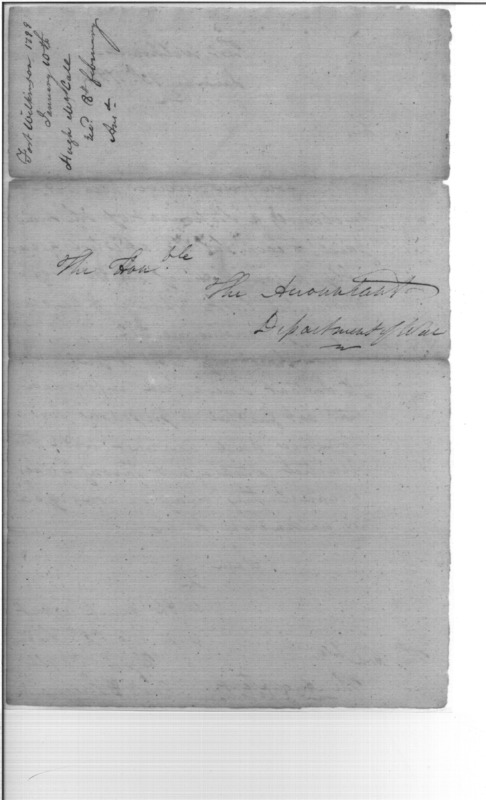 Fort Wilkinson 1798
January 10th
Hugh McCall
recd 8th february
Ansd
The Honble
The Accountant
Department of War